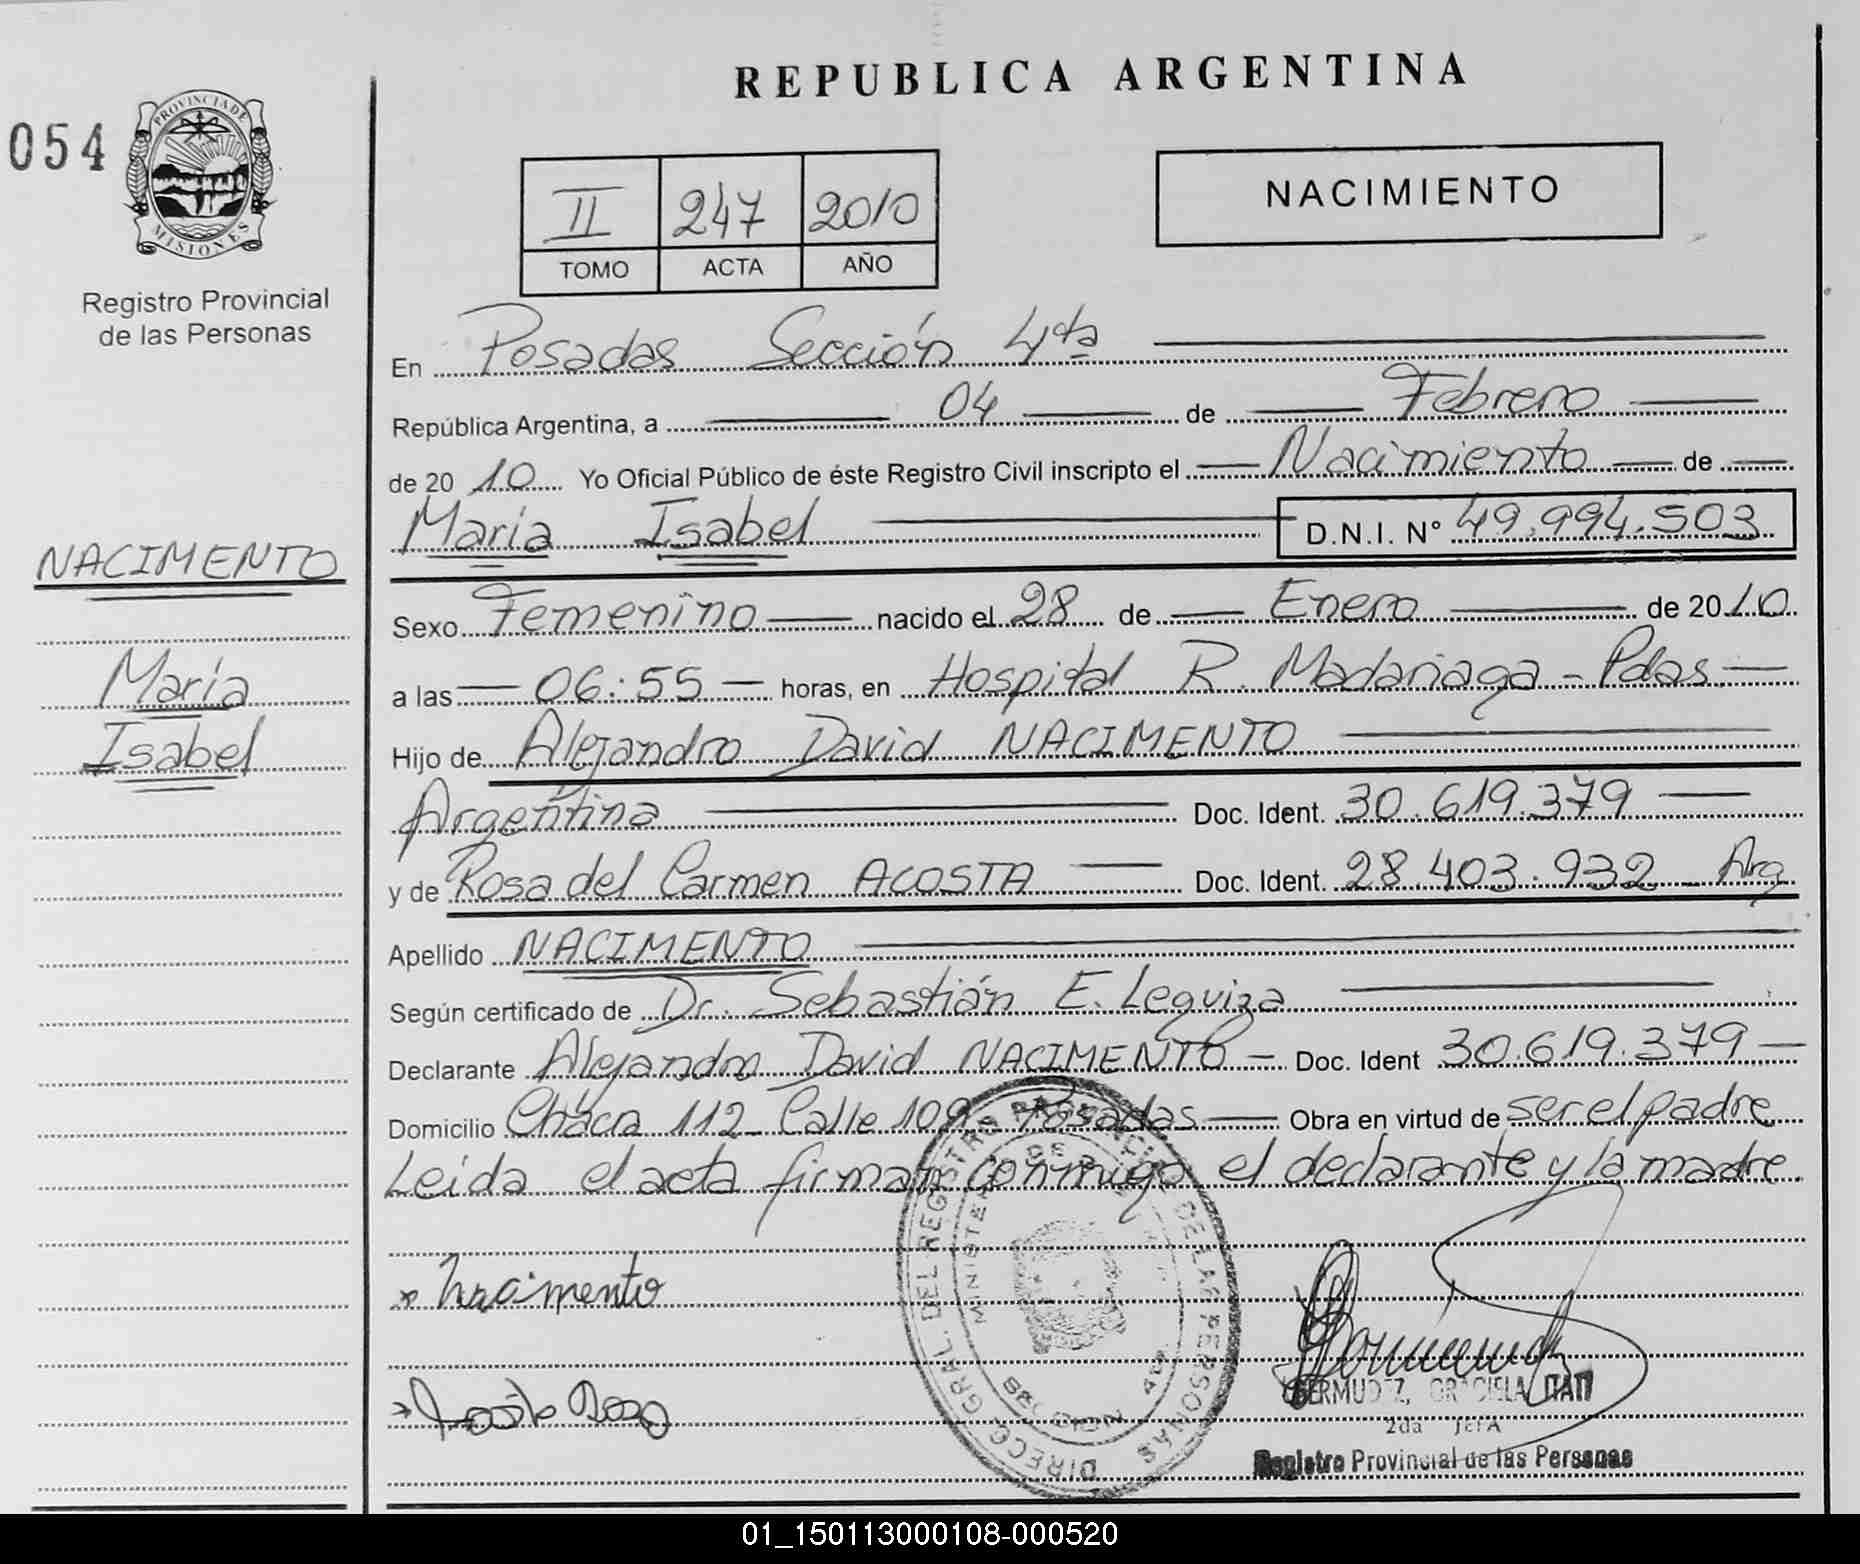 REPUBLICA ARGENTINA
054
PROVINCIA DE
MISIONES
Registro Provincial
de las Personas
II 247 2010
TOMO ACTA AÑO
NACIMIENTO
En Posadas Sección 4ta
República Argentina, a 04 de Febrero
de 2010 Yo Oficial Público de éste Registro Civil inscripto el Nacimiento de
María Isabel D.N.I. Nº 49.994.503
NACIMENTO
María
Isabel
Sexo Femenino nacido el 28 de Enero de 2010
a las 06:55 horas, en Hospital R. Madariaga - Pdas.
Hijo de Alejandro David NACIMENTO
Argentina Doc. Ident. 30.619.379
y de Rosa del Carmen ACOSTA Doc. Ident. 28.403.932 - Arg
Apellido NACIMENTO
Según certificado de Dr. Sebastián E. Leguiza
Declarante Alejandro David NACIMENTO - Doc. Ident 30.619.379
Domicilio Chacra 112 - Calle 109 - Posadas Obra en virtud de ser el padre
Leida el acta firman conmigo el declarante y la madre.
Nacimento
DIREC. GRAL. DEL REGISTRO PROVINCIAL DE LAS PERSONAS
BERMUDEZ, GRACIELA ITATI
2da JEFA
Registro Provincial de las Personas
01_150113000108-000520